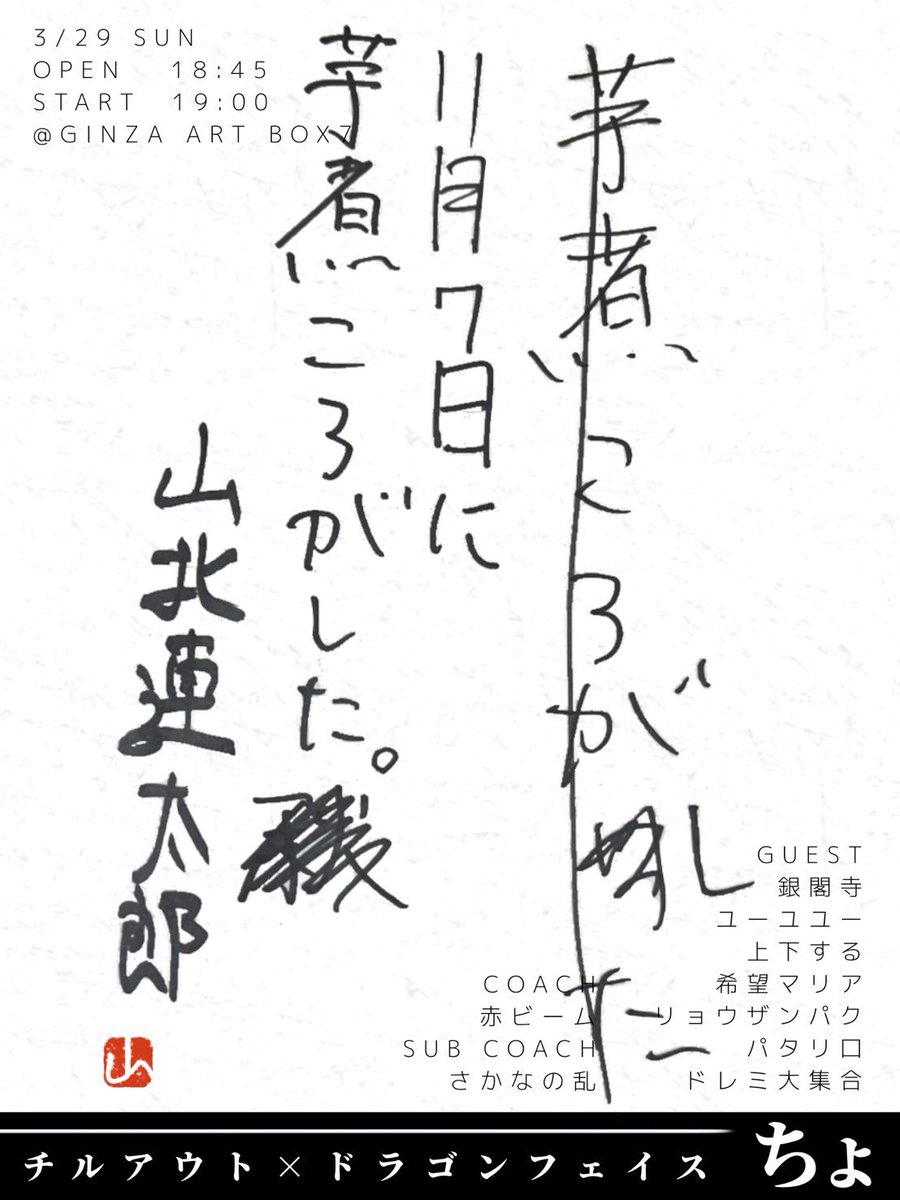 3/29 SUN
OPEN 18:45
START 19:00
@GINZA ART BOX7
芋煮ころがした
11月7日に
芋煮ころがした。
山北連太郎
山
GUEST
銀閣寺
ユーユユー
上下する
希望マリア
リョウザンパク
パタリロ
ドレミ大集合
COACH
赤ビーム
SUB COACH
さかなの乱
チルアウト×ドラゴンフェイス ちょ